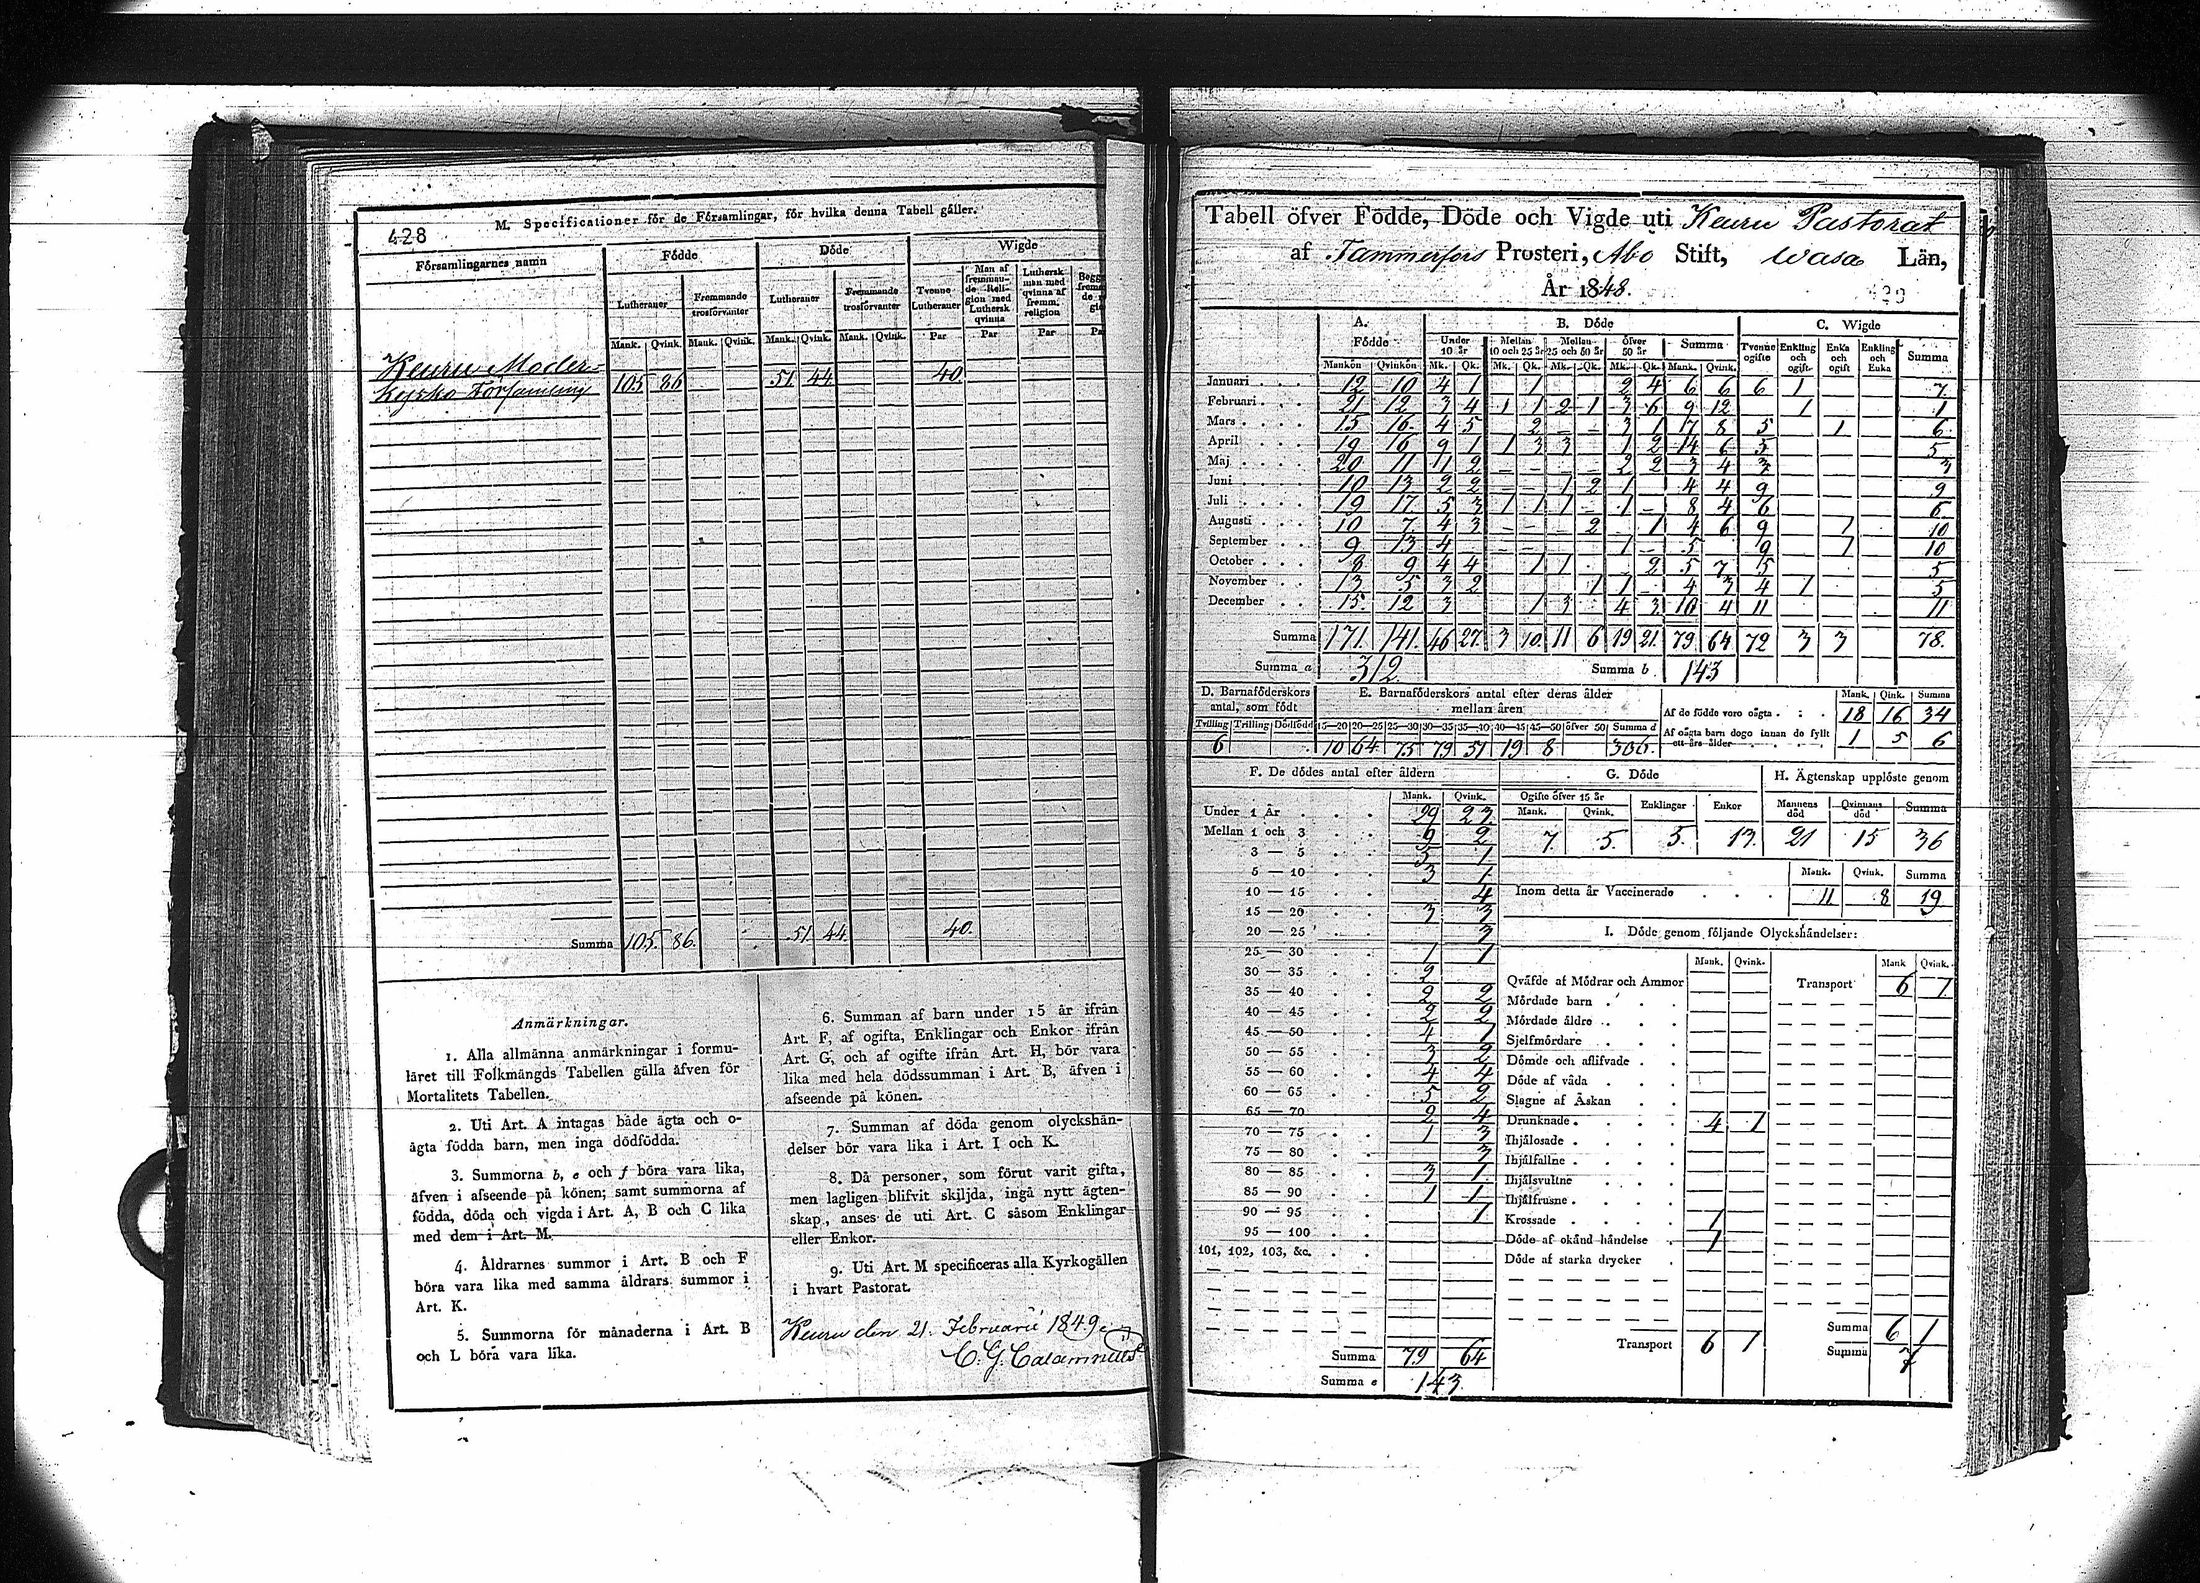 428
M. Specificationer för de Församlingar, för hvilka denna Tabell gäller.
Församlingarnes namn
Födde
Döde
Wigde
Lutheraner
Fremmande trosförvanter
Lutheraner
Fremmande trosförvanter
Tvenne Lutheraner
Man af fremmande Religion med Luthersk qvinna
Luthersk man med qvinna af fremm. religion
Mank. Qvink. Mank. Qvink. Mank. Qvink. Mank. Qvink. Par Par Par
Keuru Moder-
kyrko Församling 105 86 51 44 40
Summa 105. 86. 51. 44. 40.
Anmärkningar.
1. Alla allmänna anmärkningar i formu-
läret till Folkmängds Tabellen gälla äfven för
Mortalitets Tabellen.
2. Uti Art. A intagas både ägta och o-
ägta födda barn, men inga dödfödda.
3. Summorna b, e och f böra vara lika,
äfven i afseende på könen; samt summorna af
födda, döda och vigda i Art. A, B och C lika
med dem i Art. M.
4. Åldrarnes summor i Art. B och F
böra vara lika med samma åldrars summor i
Art. K.
5. Summorna för månaderna i Art. B
och L böra vara lika.
6. Summan af barn under 15 år ifrån
Art. F, af ogifta, Enklingar och Enkor ifrån
Art. G, och af ogifte ifrån Art. H, bör vara
lika med hela dödssumman i Art. B, äfven i
afseende på könen.
7. Summan af döda genom olyckshän-
delser bör vara lika i Art. I och K.
8. Då personer, som förut varit gifta,
men lagligen blifvit skiljda, ingå nytt ägten-
skap, anses de uti Art. C såsom Enklingar
eller Enkor.
9. Uti Art. M specificeras alla Kyrkogällen
i hvart Pastorat.
Keuru den 21. Februarii 1849.
C. G. Calamnius
Tabell öfver Födde, Döde och Vigde uti Keuru Pastorat
af Tammerfors Prosteri, Åbo Stift, Wasa Län,
År 1848.
A. Födde
B. Döde
C. Wigde
Under 10 år
Mellan 10 och 25 år
Mellan 25 och 50 år
öfver 50 år
Summa
Tvenne ogifte
Enkling och ogift
Enka och ogift
Enkling och Enka
Summa
Mankön Qvinkön Mk. Qk. Mk. Qk. Mk. Qk. Mk. Qk. Mank. Qvink.
Januari 12 10 4 1 1 2 4 6 6 6 1 7
Februari 21 12 3 4 1 1 2 1 3 6 9 12 1 1
Mars 15 16 4 5 2 3 1 17 8 5 1 6
April 19 16 9 1 1 3 3 1 2 14 6 5 5
Maj 20 11 1 2 2 2 3 4 3 3
Juni 10 13 2 2 1 2 1 4 4 9 9
Juli 19 17 5 3 1 1 1 1 8 4 6 6
Augusti 10 7 4 3 2 1 4 6 9 1 10
September 9 13 4 1 5 9 1 10
October 8 9 4 4 1 1 2 5 7 5 5
November 13 5 3 2 1 1 4 3 4 1 5
December 15 12 3 1 3 4 3 10 4 11 11
Summa 171. 141. 46 27 3 10 11 6 19 21 79 64 72 3 3 78.
Summa a 312. Summa b 143
D. Barnaföderskors antal, som födt
E. Barnaföderskors antal efter deras ålder mellan åren
Tvilling Trilling Dödfödd 15—20 20—25 25—30 30—35 35—40 40—45 45—50 öfver 50 Summa d
6 10 64 75 79 51 19 8 306.
Mank. Qink. Summa
Af de födde voro oägta 18 16 34
Af oägta barn dogo innan de fyllt ett års ålder 1 5 6
F. De dödes antal efter åldern
Mank. Qvink.
Under 1 År 29 23
Mellan 1 och 3 9 2
3 — 5 5 1
5 — 10 3 1
10 — 15 4
15 — 20 3 3
20 — 25 3
25 — 30 1 1
30 — 35 2
35 — 40 2 2
40 — 45 2 2
45 — 50 4 1
50 — 55 3 2
55 — 60 4 4
60 — 65 5 2
65 — 70 2 4
70 — 75 1 3
75 — 80 3
80 — 85 3 1
85 — 90 1 1
90 — 95 1
95 — 100
101, 102, 103, &c.
Summa 79 64
Summa e 143.
G. Döde
Ogifte öfver 15 år
Enklingar
Enkor
Mank. Qvink.
7. 5. 5. 13.
H. Ägtenskap upplöste genom
Mannens död Qvinnans död Summa
21 15 36
Mank. Qvink. Summa
Inom detta år Vaccinerade 11 8 19
I. Döde genom följande Olyckshändelser:
Mank. Qvink. Mank Qvink.
Qväfde af Mödrar och Ammor
Mördade barn
Mördade äldre
Sjelfmördare
Dömde och aflifvade
Döde af våda
Slagne af Åskan
Drunknade 4 1
Ihjälosade
Ihjälfallne
Ihjälsvultne
Ihjälfrusne
Krossade 1
Döde af okänd händelse 1
Döde af starka drycker
Transport 6 1
Transport 6 1
Summa 6 1
Summa 7